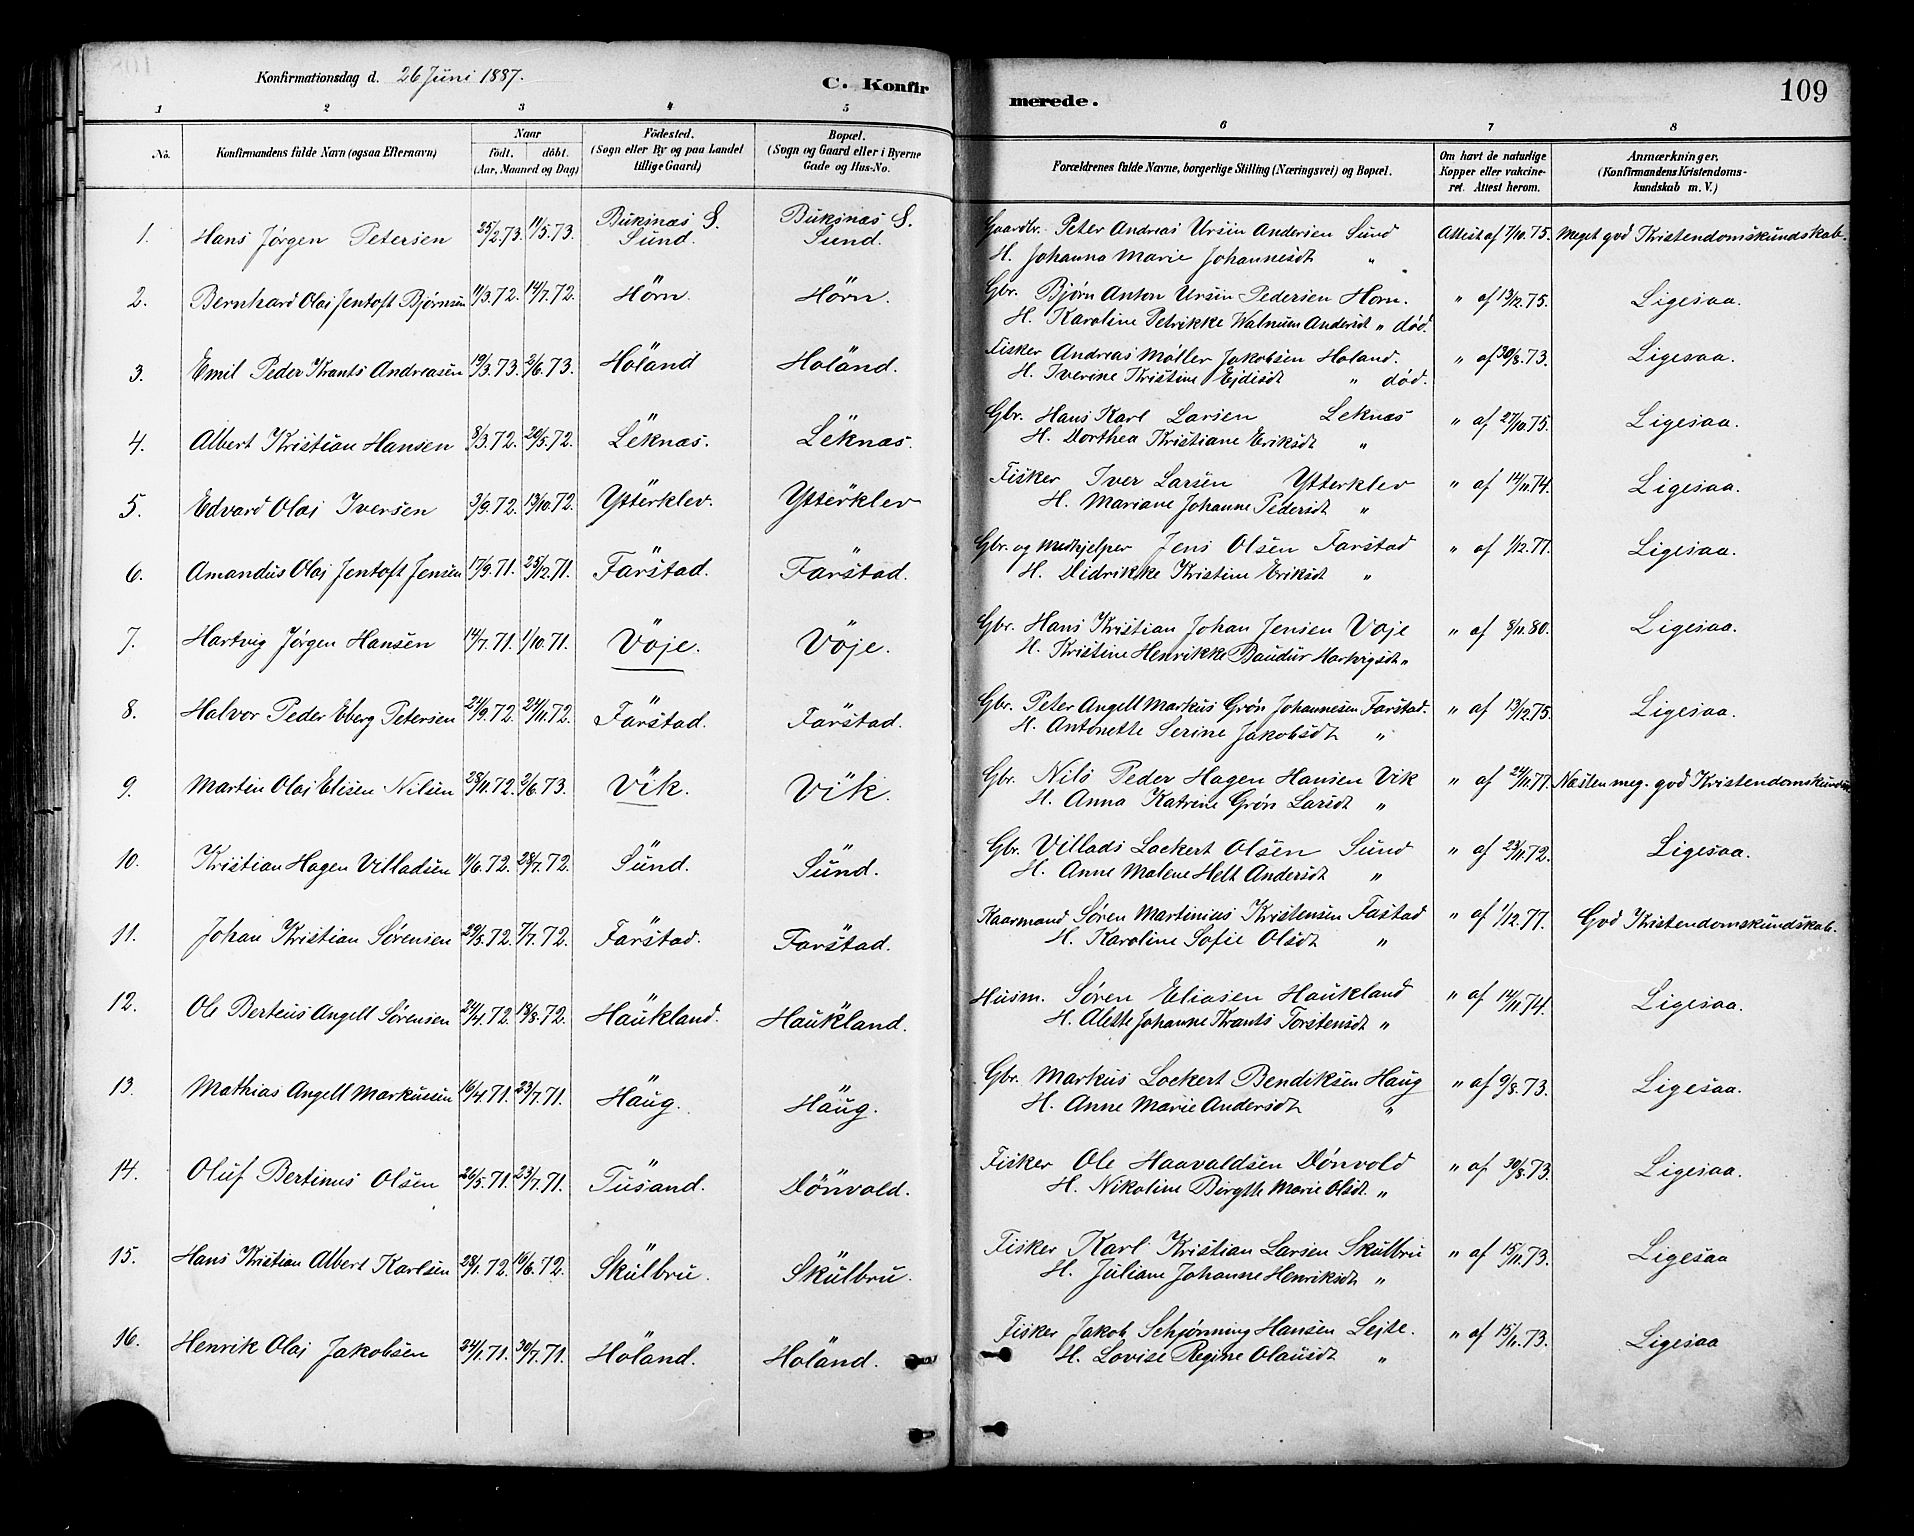 Konfirmationsdag d. 26 Juni 1887.
C. Konfirmerede.
109
1 2 3 4 5 6 7 8
No.
Konfirmandens fulde Navn (ogsaa Efternavn)
Naar
født. døbt.
(Aar, Maaned og Dag)
Fødested.
(Sogn eller By og paa Landet
tillige Gaard)
Bopæl.
(Sogn og Gaard eller i Byerne
Gade og Hus-No.
Forældrenes fulde Navne, borgerlige Stilling (Næringsvei) og Bopæl.
Om havt de naturlige
Kopper eller vakcine-
ret. Attest herom.
Anmærkninger.
(Konfirmandens Kristendoms-
kundskab m. V.)
1. Hans Jørgen Petersen 25/2.73. 11/5.73. Buksnæs S. Sund. Buksnæs S. Sund. Gaardbr. Peter Andreas Ursin Andersen Sund Attest af 7/10.75. Meget god Kristendomskundskab.
H. Johanna Marie Johannesdt "
2. Bernhard Olai Jentoft Bjørnsen 11/3.72. 14/7.72. Horn. Horn. Gbr. Bjørn Anton Ursin Pedersen Horn. " af 13/12.75. Ligesaa.
H. Karoline Petrikke Walnum Andersdt " død.
3. Emil Peder Krants Andreasen 19/3.73. 2/6.73. Holand Holand. Fisker Andreas Møller Jakobsen Holand. " af 30/8.73. Ligesaa.
H. Iverine Kristine Ejdisdt " død.
4. Albert Kristian Hansen 8/3.72. 20/5.72. Leknæs. Leknæs. Gbr. Hans Karl Larsen Leknæs " af 27/10.75. Ligesaa.
H. Dorthea Kristiane Eriksdt "
5. Edvard Olai Iversen 3/9.72. 13/10.72. Ytterklev. Ytterklev Fisker Iver Larsen Ytterklev " af 14/11.74. Ligesaa.
H. Mariane Johanne Pedersdt "
6. Amandus Olai Jentoft Jensen 17/9.71. 25/12.71. Farstad. Farstad. Gbr. og Medhjelper Jens Olsen Farstad " af 1/12.77. Ligesaa.
H. Didrikke Kristine Eriksdt "
7. Hartvig Jørgen Hansen 14/7.71. 1/10.71. Voje. Voje. Gbr. Hans Kristian Johan Jensen Voje " af 8/11.80. Ligesaa.
H. Kristine Henrikke Baudur Hartvigsdt "
8. Halvor Peder Eberg Petersen 24/9.72. 24/11.72. Farstad. Farstad. Gbr. Peter Angell Markus Grøn Johannesen Farstad. " af 13/12.75. Ligesaa.
H. Antonette Serine Jakobsdt "
9. Martin Olai Elisen Nilsen 28/11.72. 2/6.73. Vik. Vik. Gbr. Nils Peder Hagen Hansen Vik " af 24/11.77. Næsten meg. god
H. Anna Katrine Grøn Larsdt "
10. Kristian Hagen Villadsen 11/6.72. 28/7.72. Sund. Sund. Gbr. Villads Lockert Olsen Sund " af 23/11.72. Ligesaa.
H. Anne Malene Helt Andersdt "
11. Johan Kristian Sørensen 29/5.72. 7/7.72. Farstad. Farstad. Kaarmand Søren Martinius Kristensen Fastad " af 1/12.77. God Kristendomskundskab.
H. Karoline Sofie Olsdt "
12. Ole Berteus Angell Sørensen 24/4.72. 18/8.72. Haukland. Haukland. Husm. Søren Eliasen Haukland " af 14/11.74. Ligesaa.
H. Alette Johanne Krants Torstensdt "
13. Mathias Angell Markussen 16/4.71. 23/7.71. Haug. Haug. Gbr. Markus Lockert Bendiksen Haug " af 9/8.73. Ligesaa.
H. Anne Marie Andersdt "
14. Oluf Bertinus Olsen 26/5.71. 23/7.71. Tusand. Dønvold. Fisker Ole Haavaldsen Dønvold " af 30/8.73. Ligesaa.
H. Nikoline Birgtte Marie Olsdt "
15. Hans Kristian Albert Karlsen 28/1.72. 16/6.72. Skulbru. Skulbru. Fisker Karl Kristian Larsen Skulbru " af 15/11.73. Ligesaa
H. Juliane Johanne Henriksdt "
16. Henrik Olai Jakobsen 24/1.71. 30/7.71. Holand. Holand. Fisker Jakob Schjønning Hansen Lejte. " af 15/11.73. Ligesaa
H. Lovise Regine Olausdt "